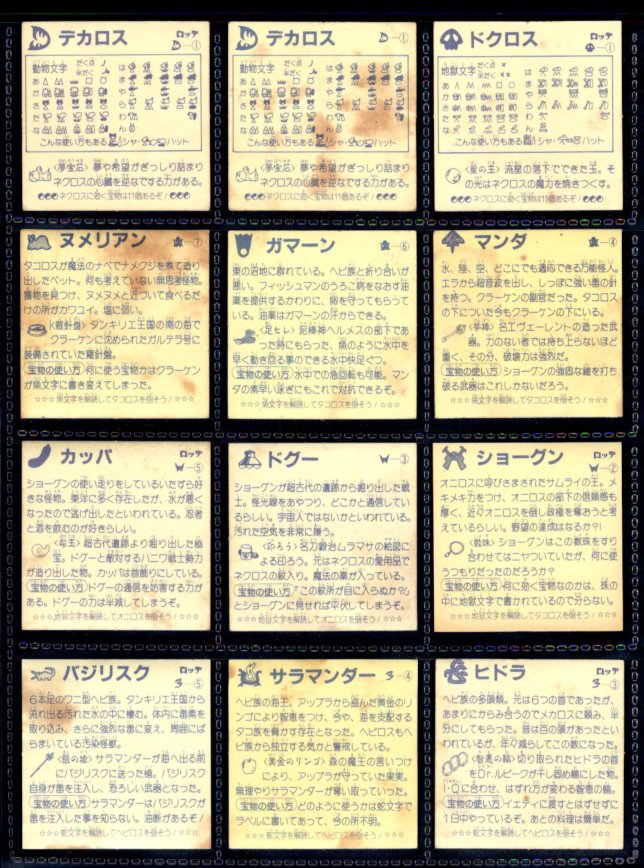 デカロス
ロッテ
①
動物文字
だく点
半だく
あ
か
さ
た
な
は
ま
や
ら
わ
ん
こんな使い方もある
シャ・
ハット
〈夢宝石〉夢や希望がぎっしり詰まり
ネクロスの心臓を逆なでする力がある。
ネクロスに効く宝物は11個あるぞ!
デカロス
①
動物文字
だく点
半だく
あ
か
さ
た
な
は
ま
や
ら
わ
ん
こんな使い方もある
シャ・
ハット
〈夢宝石〉夢や希望がぎっしり詰まり
ネクロスの心臓を逆なでする力がある。
ネクロスに効く宝物は11個あるぞ!
ドクロス
ロッテ
①
地獄文字
だく点
半だく
あ
か
さ
た
な
は
ま
や
ら
わ
ん
こんな使い方もある
シャ・
ハット
流星の落下でできた玉。そ
の光はネクロスの魔力を焼きつくす。
ネクロスに効く宝物は11個あるぞ!
ヌメリアン
⑦
タコロスが魔法のナベでナメクジを煮て造り
出したペット。何も考えていない無思考怪物。
獲物を見つけ、ヌメヌメと近づいて食べるだ
けの所がカワユイ。塩に弱い。
タンキリエ王国の南の海で
クラーケンに沈められたガルテラ号に
装備されていた羅針盤。
宝物の使い方 何に使う宝物かはクラーケン
が魚文字に書き変えてしまった。
☆☆☆魚文字を解読してタコロスを倒そう!☆☆☆
ガマーン
⑥
東の沼地に群れている。ヘビ族と折り合いが
悪い。フィッシュマンのうろこ病をなおす油
薬を提供するかわりに、卵を守ってもらって
いる。油薬はガマーンの汗からできる。
〈足ヒレ〉泥棒神ヘルメスの部下であっ
た時にもらった、魚のように水中を
早く動き回る事のできる水中快足ぐつ。
宝物の使い方 水中での急回転も可能。マン
ダの素早い泳ぎにもこれで対抗できるぞ。
☆☆☆魚文字を解読してタコロスを倒そう!☆☆☆
マンダ
④
水、陸、空、どこにでも適応できる万能怪人。
エラから超音波を出し、しっぽに強い毒の針
を持つ。クラーケンの副官だった。タコロス
の下についた今もクラーケンの下にいる。
名工ヴェーレントの造った武
器。力のない者では持ち上らないほど
重く、その分、破壊力は強烈だ。
宝物の使い方 ショーグンの強固な鎧を打ち
破る武器はこれしかないだろう。
☆☆☆魚文字を解読してタコロスを倒そう!☆☆☆
カッパ
ロッテ
⑤
ショーグンの使い走りをしているいたずら好
きな怪物。東洋に多く存在したが、水が悪く
なったので逃げ出したといわれている。忍者
と酒を飲むのが好きらしい。
〈勾玉〉超古代遺跡より堀り出した秘
宝。ドグーと敵対するハニワ戦士勢力
が造り出した物。カッパは首飾りにしている。
宝物の使い方 ドグーの通信を妨害する力が
ある。ドグーの力は半減してしまうぞ。
☆☆☆地獄文字を解読してオニロスを倒そう!☆☆☆
ドグー
③
ショーグンが超古代の遺跡から掘り出した戦
士。怪光線をあやつり、どこかと通信してい
るらしい。宇宙人ではないかといわれている。
汚れた空気を非常に嫌う。
〈印ろう〉名刀鍛冶ムラマサの絵図に
よる印ろう。元はネクロスの愛用品で
ネクロスの紋入り。魔法の薬が入っている。
宝物の使い方 「この紋所が目に入らぬか?」
とショーグンに見せれば平伏してしまうぞ。
☆☆☆地獄文字を解読してオニロスを倒そう!☆☆☆
ショーグン
ロッテ
②
オニロスに呼びさまされたサムライの王。メ
キメキ力をつけ、オニロスの部下の信頼感も
厚く、近々オニロスを倒し政権を奪おうと考
えているらしい。野望の達成はなるか?!
〈数珠〉ショーグンはこの数珠をすり
合わせてはニヤついていたが、何に使
うつもりだったのだろうか?
宝物の使い方 何に効く宝物なのかは、珠の
中に地獄文字で書かれているので分らない。
☆☆☆地獄文字を解読してオニロスを倒そう!☆☆☆
バジリスク
ロッテ
⑤
6本足のワニ型ヘビ族。タンキリエ王国から
流れ出る汚れた水の中に棲む。体内に毒素を
取り込み、さらに強烈な毒に変え、周囲にば
らまいている汚染怪獣。
サラマンダーが海へ出る前
にバジリスクに送った槍。バジリスク
自身が毒を注入し、恐ろしい武器となった。
宝物の使い方 サラマンダーはバジリスクが
毒を注入した事を知らない。油断があるぞ!
☆☆☆蛇文字を解読してヘビロスを倒そう!☆☆☆
サラマンダー
④
ヘビ族の海王。アップラから盗んだ黄金のリ
ンゴにより智恵をつけ、今や、海を支配する
タコ族を脅かす存在となった。ヘビロスもヘ
ビ族から独立する気かと警戒している。
〈黄金のリンゴ〉森の魔王の言いつけ
により、アップラが守っていた果実。
無理やりサラマンダーが奪い取っていった。
宝物の使い方 どのように使うかは蛇文字で
ラベルに書いてあって、今の所不明。
☆☆☆蛇文字を解読してヘビロスを倒そう!☆☆☆
ヒドラ
ロッテ
③
ヘビ族の多頭類。元は6つの首であったが、
あまりにからみ合うのでメカロスに頼み、半
分にしてもらった。昔は百の頭があったとい
われているが、年々減らしてこの数になった。
〈智恵の輪〉切り取られたヒドラの首
をDr.ルピークが干し固め輪にした物。
I・Qに合わせ、はずれ方が変わる智恵の輪。
宝物の使い方 イエティに渡すとはずせずに
1日中やっているぞ。あとの料理は簡単だ。
☆☆☆蛇文字を解読してヘビロスを倒そう!☆☆☆